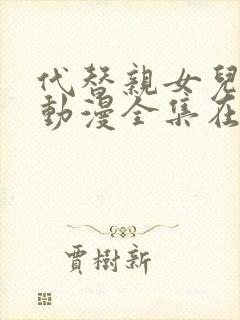 代替親女兒
動漫全集在
賈樹新